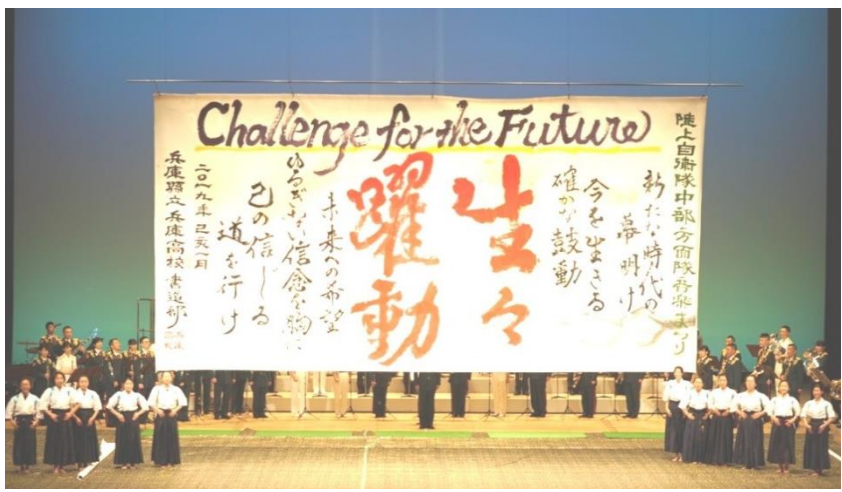 Challenge for the Future
陸上自衛隊中部方面隊音楽まつり
新たな時代の
幕明け
今を生きる
確かな鼓動
生々
躍動
未来への希望
ゆるぎない信念を胸に
己の信じる
道を行け
二〇一九年 己亥
兵庫縣立兵庫高校 書道部